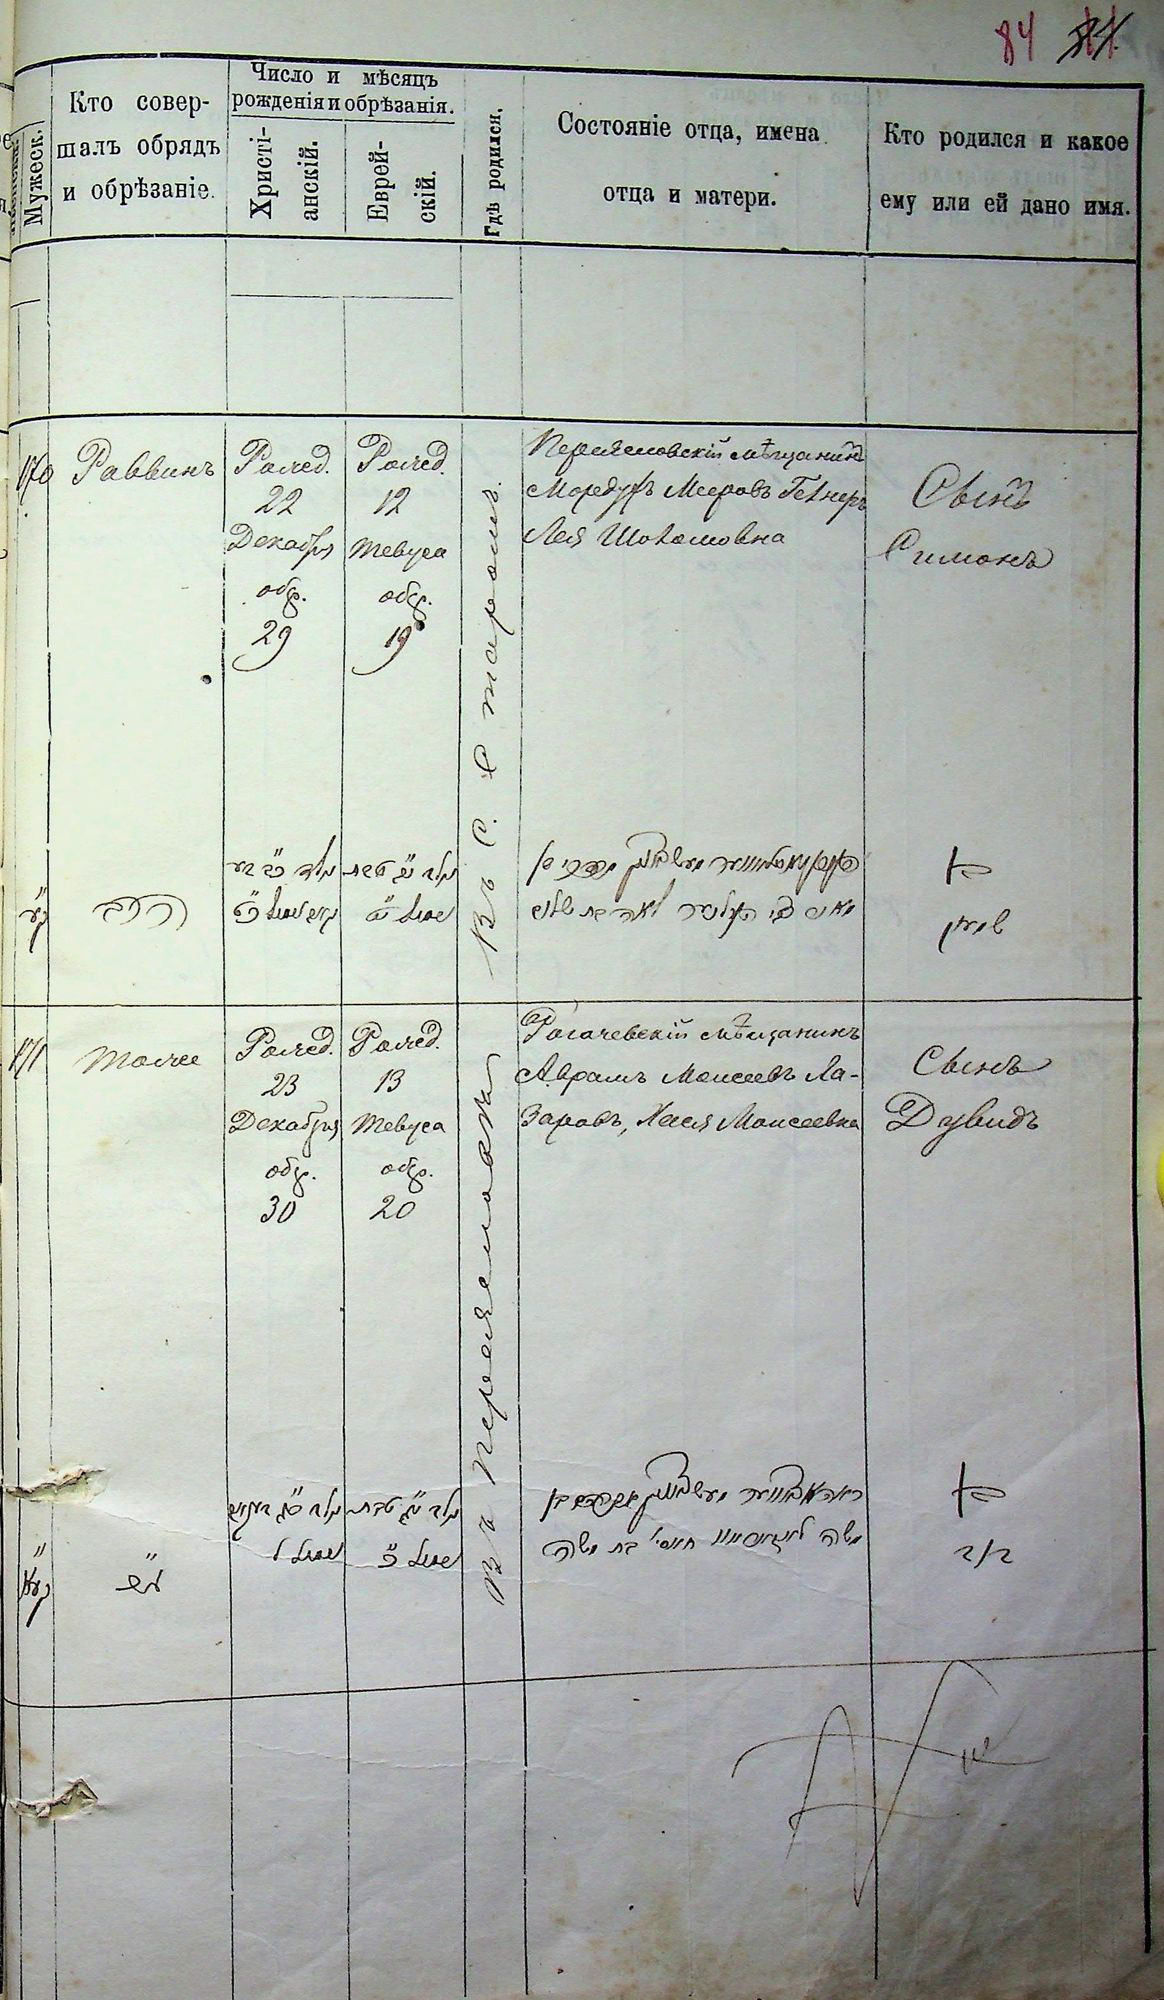 84
Мужеск.
Кто совер-
шалъ обрядъ
и обрѣзаніе.
Число и мѣсяцъ
рожденія и обрѣзанія.
Христі-
анскій.
Еврей-
скій.
Гдѣ родился.
Состояніе отца, имена
отца и матери.
Кто родился и какое
ему или ей дано имя.
170
Раввинъ
Рожд.
22
Декабря
обр.
29
Рожд.
12
Тевуса
обр.
19
Въ С. Старомъ.
Переяславскій мѣщанинъ
Мордухъ Мееровъ
Лея Шоломовна
Сынъ
Симонъ
קע
הרב
לאה בת שלום
בן
שמעון
171
тоже
Рожд.
23
Декабря
обр.
30
Рожд.
13
Тевуса
обр.
20
Въ Переяславѣ
Рогачевскій мѣщанинъ
Аврамъ Моисеевъ Ла-
заровъ, Хася Моисеевна
Сынъ
Дувидъ
קעא
משה
בת משה
בן
דוד